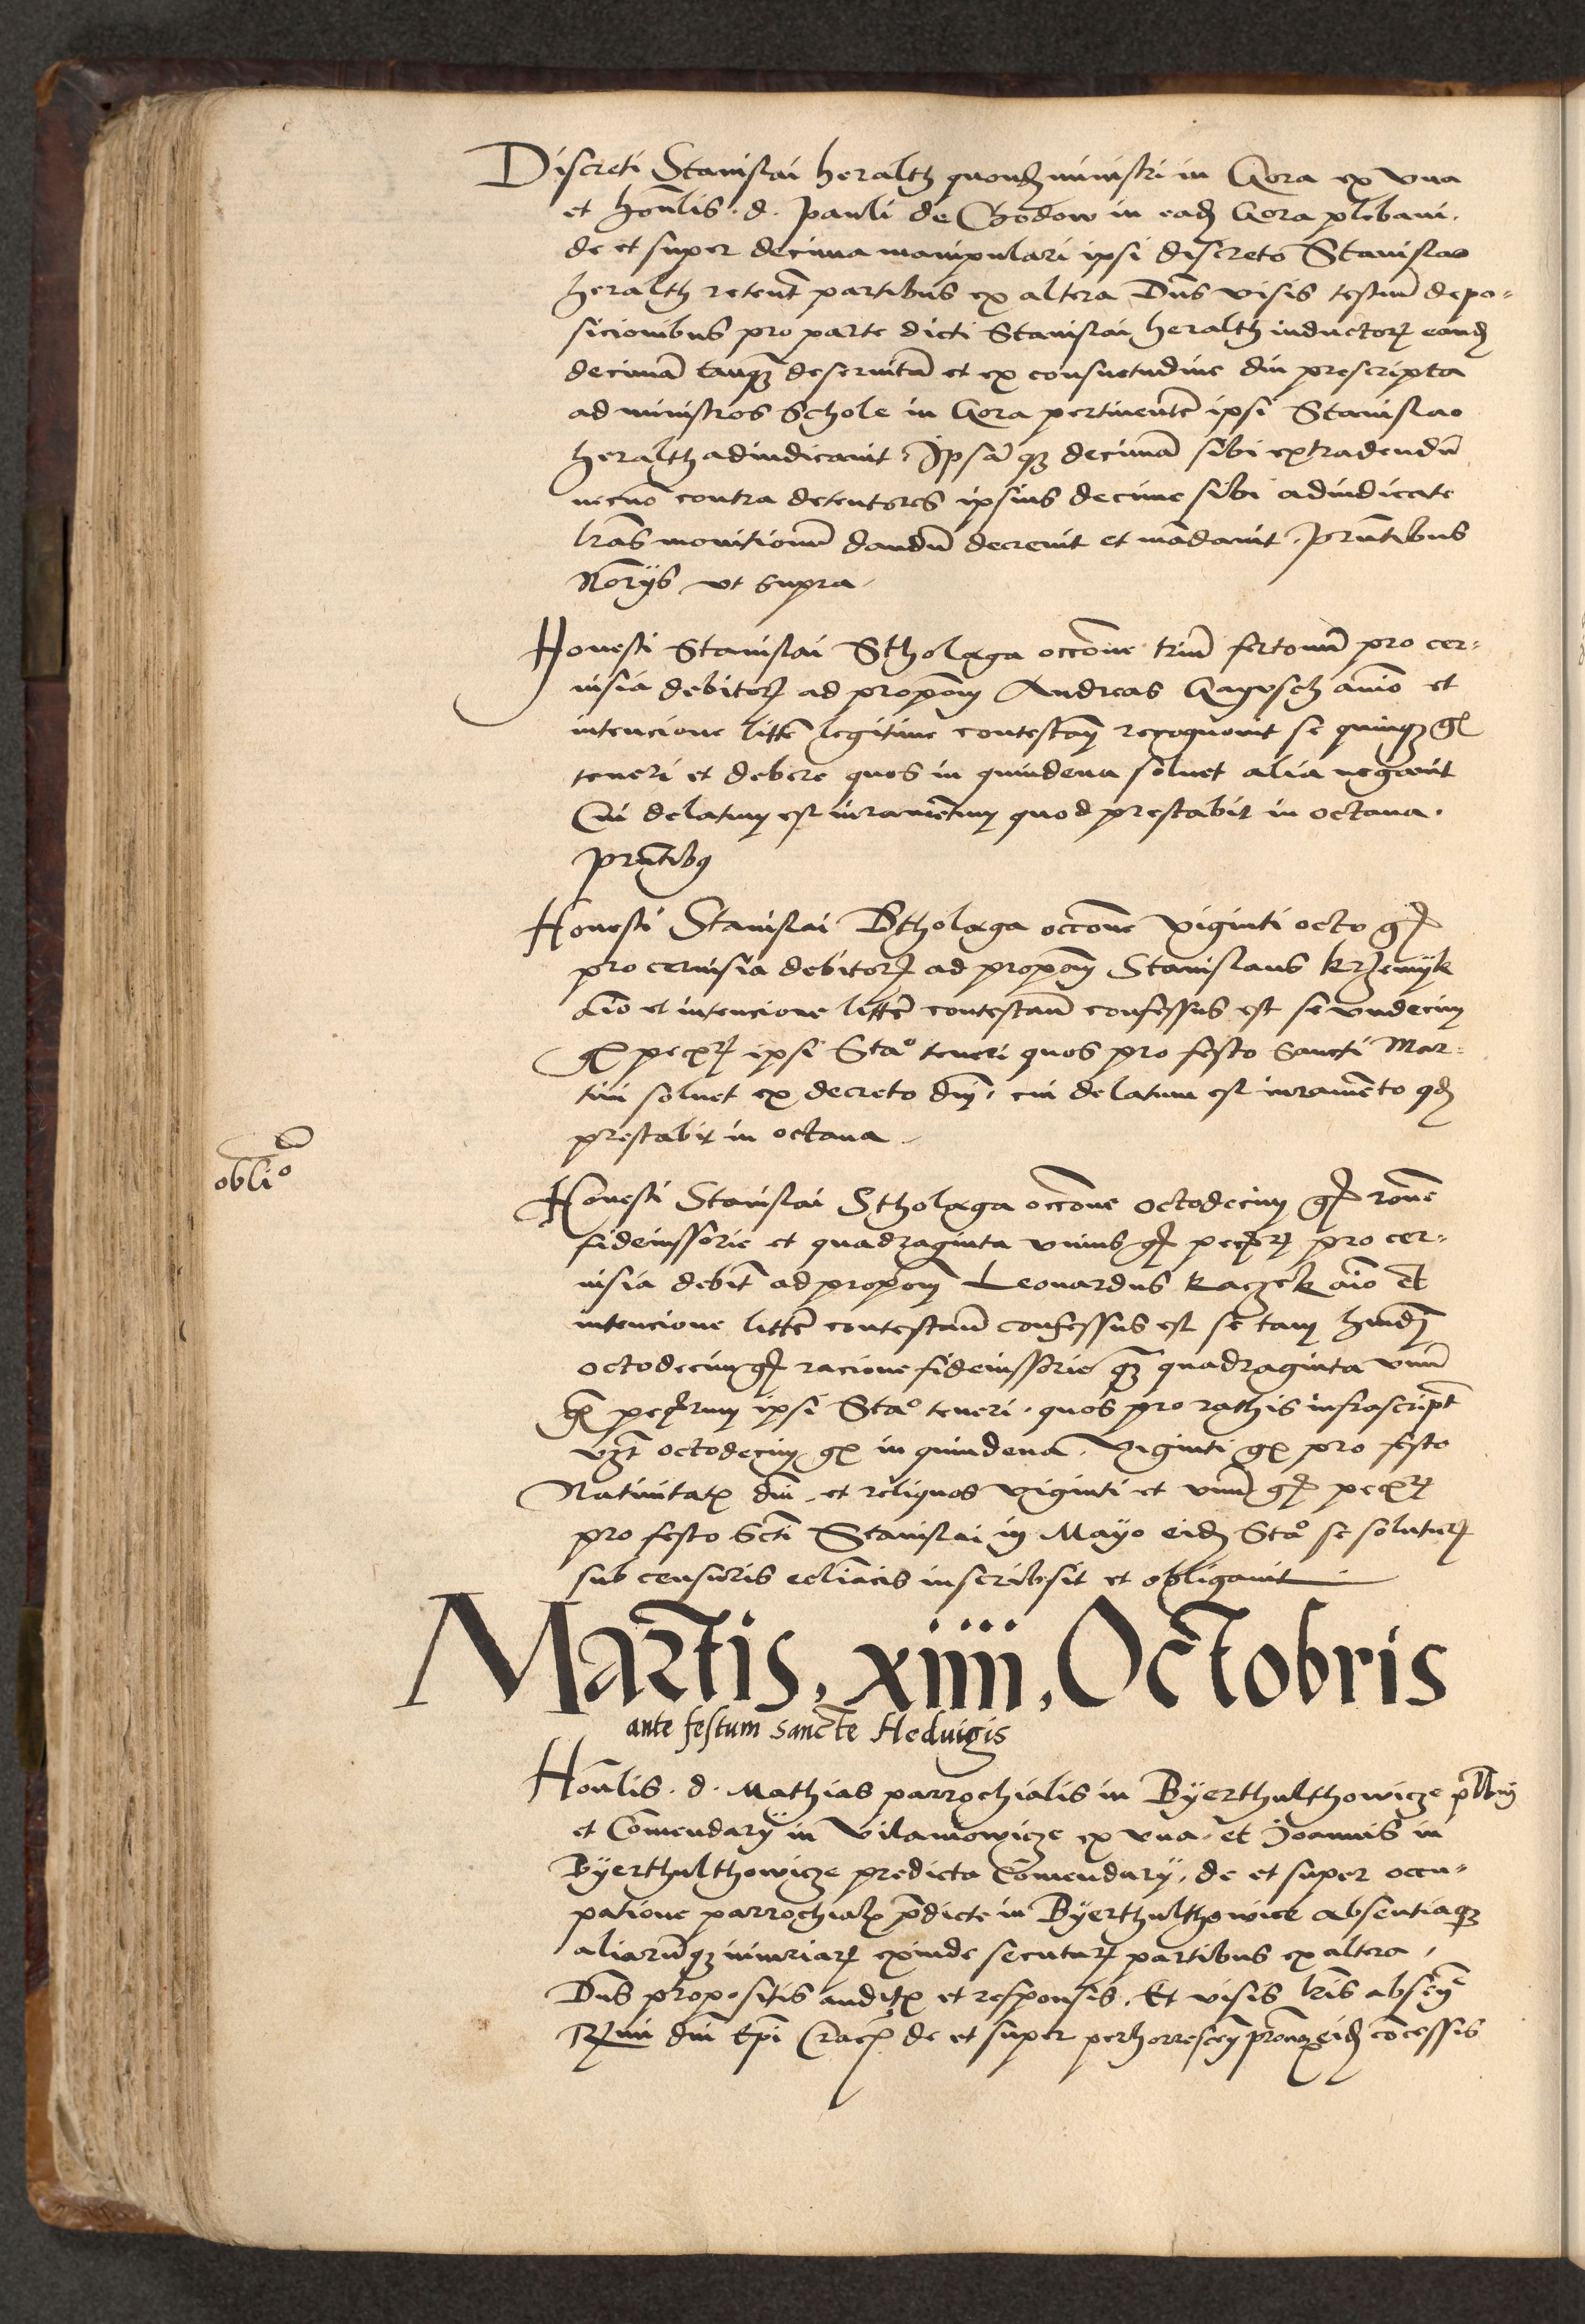 Discreti Stanislai heralth quondz ministri in Gora ex vna
et honlis . d . pauli de Chodow in eadz Gora plebani .
de et super decima manipulari ipsi discreto Stanislao
heralth retent partibus ex altera Dns visis testium depo-
sicionibus pro parte dicti Stanislai heralth inductorz eandz
decimam tanqz deseruitam et ex consuetudine diu prescripta
ad ministros Schole in Gora pertinente ipsi Stanislao
heralth adiudicauit . Ipsamqz decimam sibi extradendam
necno contra detentores ipsius decime sibi adiudicate
lras monitionum dandum decreuit et mandauit . prntibus
Norijs vt supra .
Honesti Stanislai Stholarga occone trium fertonum pro cer-
uisia debitorz ad propom Andreas Gagvsch animo et
intencione litte legitime contestan recognouit se quinqz gr
teneri et debere quos in quindena soluet alia negauit
Cui delatum est iuramentum quod prestabit in octaua .
prntibus
Honesti Stanislai Stholarga occone viginti octo gr
pro ceruisia debitorz ad propom Stanislaus krzemijk
aio et intencione litte contestan confessus est se vndecim
gr pecrz ipsi Stao teneri quos pro festo Sancti Mar-
tini soluet ex decreto dni . cui delatum est iuramento qdz
prestabit in octaua .
oblio
Honesti Stanislai Stholarga occone octodecim gr rone
fideiussorie et quadraginta vnius gr pecrz pro cer-
uisia debit ad propom Leonardus kaczek aio et
intencione litte contestan confessus est se tam hmoi
octodecim gr racione fideiussorie qz quadraginta vnum
gr pecrum ipsi Stao teneri . quos pro rathis infrascript
vzt octodecim gr in quindena . viginti gr pro festo
Natiuitatis dni . et reliquos viginti et vnum gr pecrz
pro festo Scti Stanislai in Mayo eidz Stao se soluturz
sub censuris ecliacis inscribsit et obligauit
Martis, xiiii, Octobris
ante festum sancte Heduigis
Honlis . d . Mathias parrochialis in Byerthulthowicze plbni
et Comendarij in Vilamowicze ex vna . et Joannis in
Byerthulthowicze predicta Comendarij . de et super occu-
patione parrochialis predicte in Byerthulthowice absentiaqz
aliarumqz iniuriarz exinde secuturz partibus ex altera .
Dns propositis auditis et responsis . Et visis lris absen
Rmi dni Epi Crac de et super perhorrescen eidz concessis